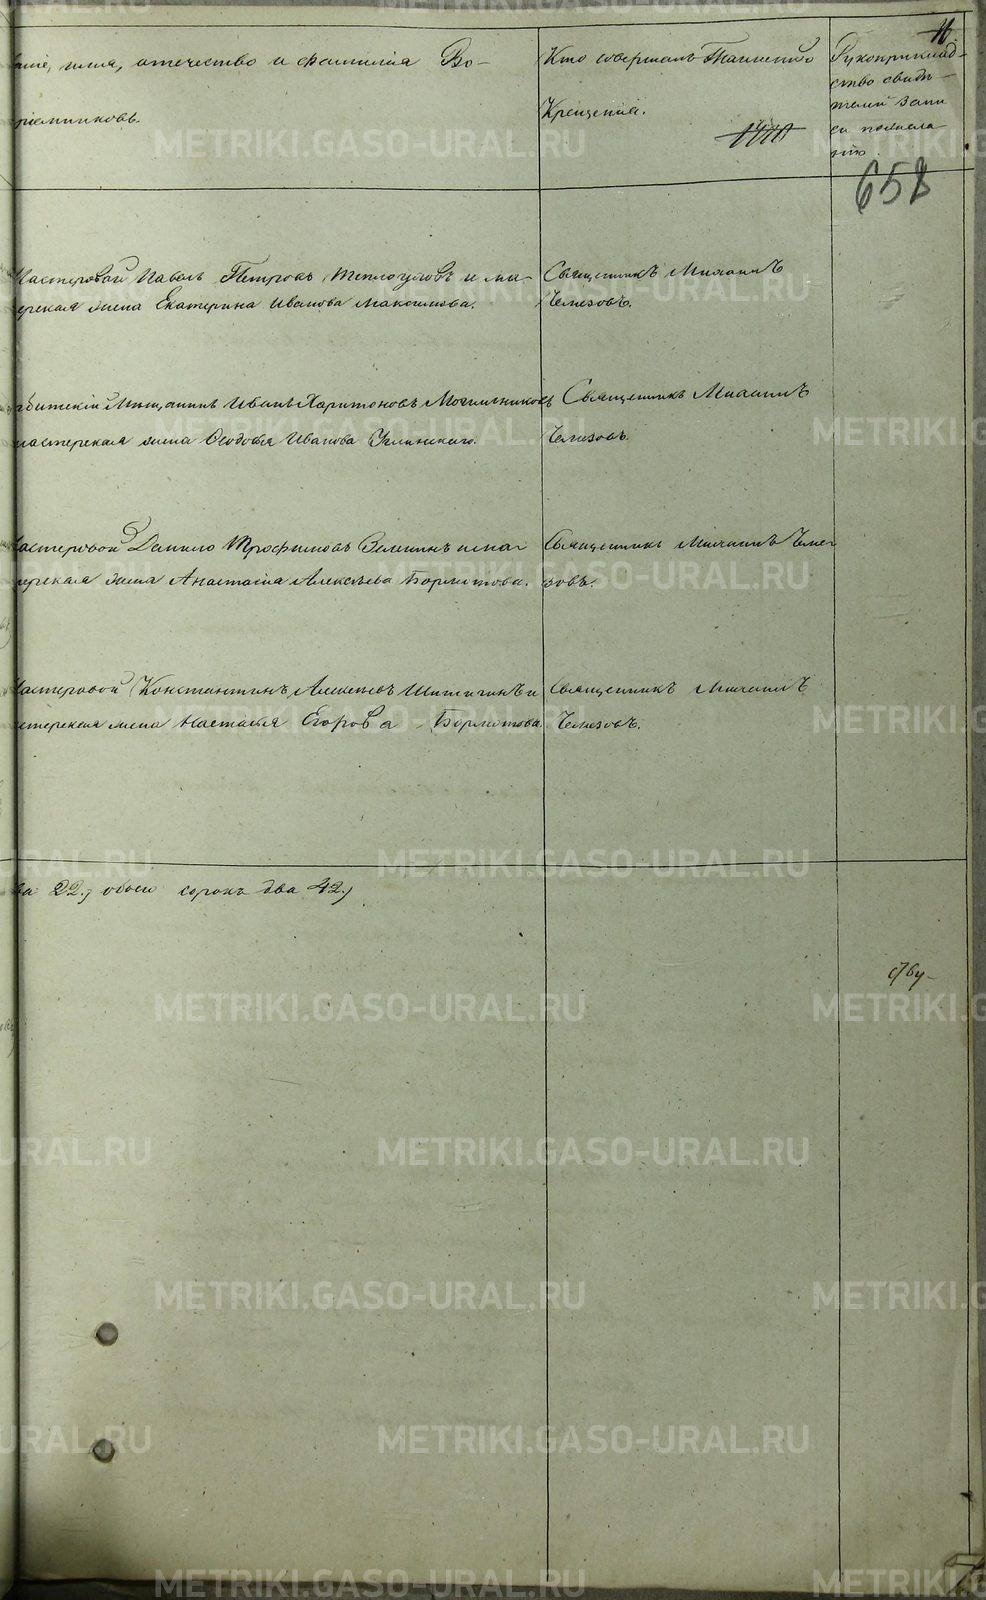 ніе, имя, отечество и фамилія Во-
ріемниковъ.
Кто совершалъ Таинство
Крещенія.
Рукоприклад-
ство свидѣ-
телей запи
си по жела
нію
11
658
мастеровой Павелъ Петровъ Теплоуховъ и ма-
ерская жена Екатерина Иванова Максимова.
Священникъ Михаилъ
Чемезовъ.
рбитскій мѣщанинъ Иванъ Харитоновъ Могильниковъ
мастерская жена Ѳеодосья Иванова
Священникъ Михаилъ
Чемезовъ.
мастеровой Данило Трофимовъ Зелнинъ и мас
терская жена Анастасія Алексѣева Бормотова.
Священникъ Михаилъ Чеме
зовъ.
мастеровой Константинъ Алексѣевъ Шипигинъ и
стерская жена Настасія Егорова Бормотова.
Священникъ Михаилъ
Чемезовъ.
ва 22, обоего сорокъ два 42,
METRIKI.GASO-URAL.RU